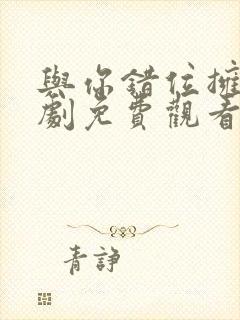 與你錯位擁
劇免費觀看
青諍